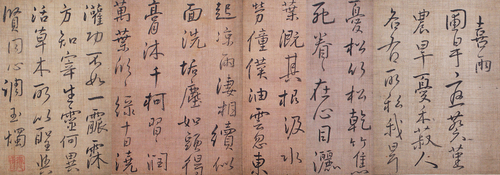 喜雨
圃旱憂葵堇
農旱憂禾菽人
各有所私我旱
憂松竹松乾竹焦
死眷々在心目灑
葉溉其根汲水
勞僮僕油雲忽東
起涼雨淒相續似
面洗垢塵如頭得
膏沐千柯習々潤
萬葉欣々綠千日澆
灌功不如一霢霂
方知宰生靈何異
活草木所以聖與
賢同心調玉燭